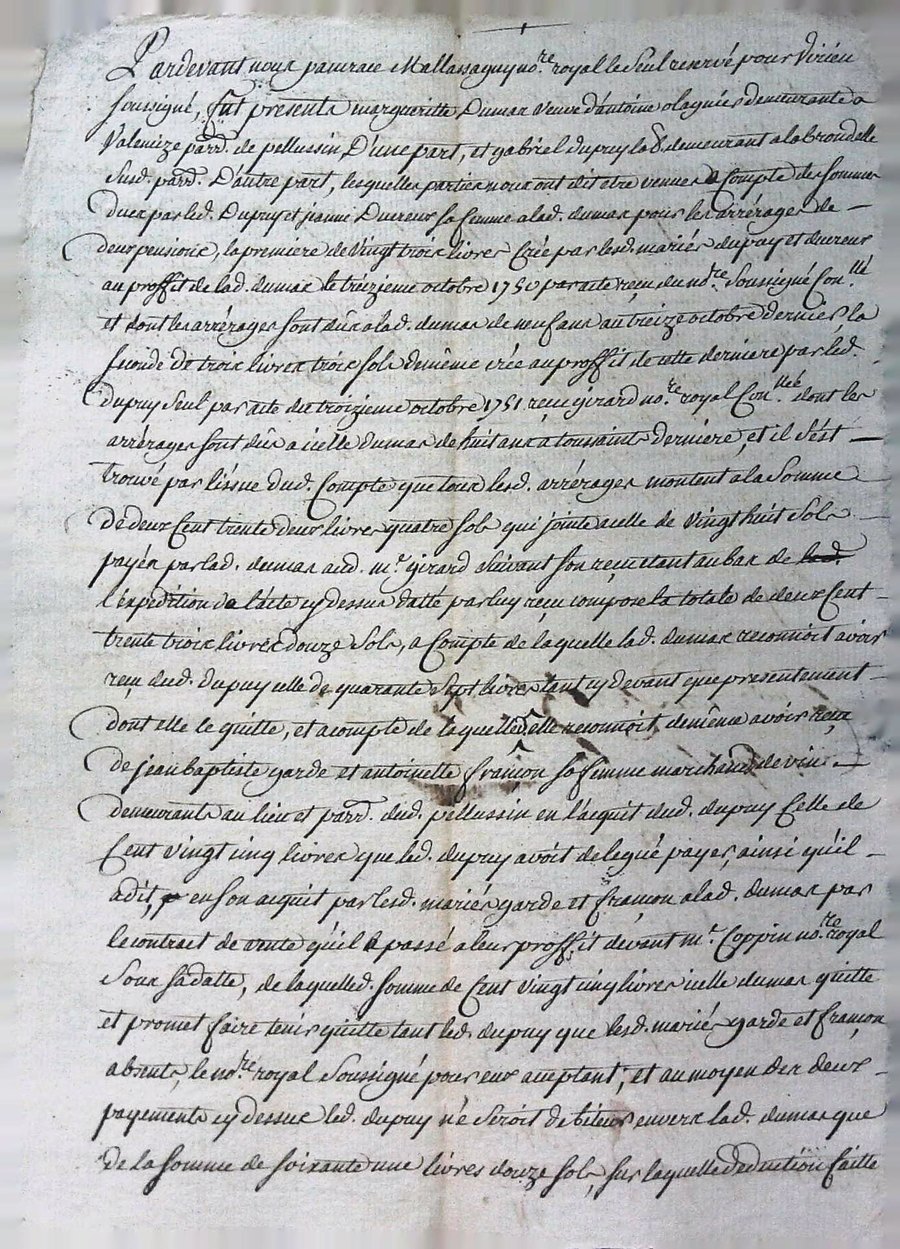 Pardevant nous pancrace Mallassagny no.re royal le Seul reservé pour Virieu
soussigné, fut presente margueritte Dumas veuve d'antoine olagnier demeurante a
Valencize parr.d de pellussin D'une part, et gabriel dupuy lab.r demeurant a la brondelle
susd. parr.d D'autre part, lesquelles parties nous ont dit etre venues a Compte des sommes
dues par led. Dupuy et jeanne Ducreux sa femme a lad. dumas pour les arrérages de
deux pensions, la premiere de vingt trois livres Créé par lesd. mariés dupuy et ducreux
au proffit de lad. dumas le treizieme octobre 1750 par acte reçu du no.re Soussigné Con.llé
et dont les arrérages sont dûs a lad. dumas de neuf ans au treize octobre dernier la
seconde de trois livres trois sols de même créé au proffit de cette derniere par led.
dupuy seul par acte du troizieme octobre 1751 reçu girard no.re royal Con.llé dont les
arrérages sont dûs a icelle dumas de huit ans a toussaints derniere, et il s'est
trouvé par l'issue dud. Compte que tous lesd. arrérages montent a la Somme
de deux Cent trente deux livres quatre sols qui jointe a celle de vingt huit sols
payés par lad. dumas aud. m.e girard suivant son reçu étant au bas de led.
l'expédition de l'acte cy dessus datté par luy reçu compose la totale de deux Cent
trente trois livres douze sols, a Compte de laquelle lad. dumas reconnoit avoir
reçu dud. dupuy celle de quarante sept livres tant cy devant que presentement
dont elle le quitte, et acompte de laquelle elle reconnoit de même avoir reçu
de jean baptiste garde et antoinette françon sa femme marchands de vin
demeurants au lieu et parr.d dud. pellussin en l'acquit dud. dupuy Celle de
Cent vingt cinq livres que led. dupuy avoit delegué payer, ainsi qu'il
a dit, en son acquit par lesd. mariés garde et françon a lad. dumas par
le contrat de vente qu'il a passé a leur proffit devant m.e Coppin no.re royal
sous sa datte, de laquelle d. somme de Cent vingt cinq livres icelle dumas quitte
et promet faire tenir quitte tant led. dupuy que lesd. mariés garde et françon
absents, le no.re royal Soussigné pour eux acceptant, et au moyen des deux
payements cy dessus led. dupuy ne seroit debiteur envers lad. dumas que
de la somme de soixante une livres douze sols, sur laquelle deduction faitte